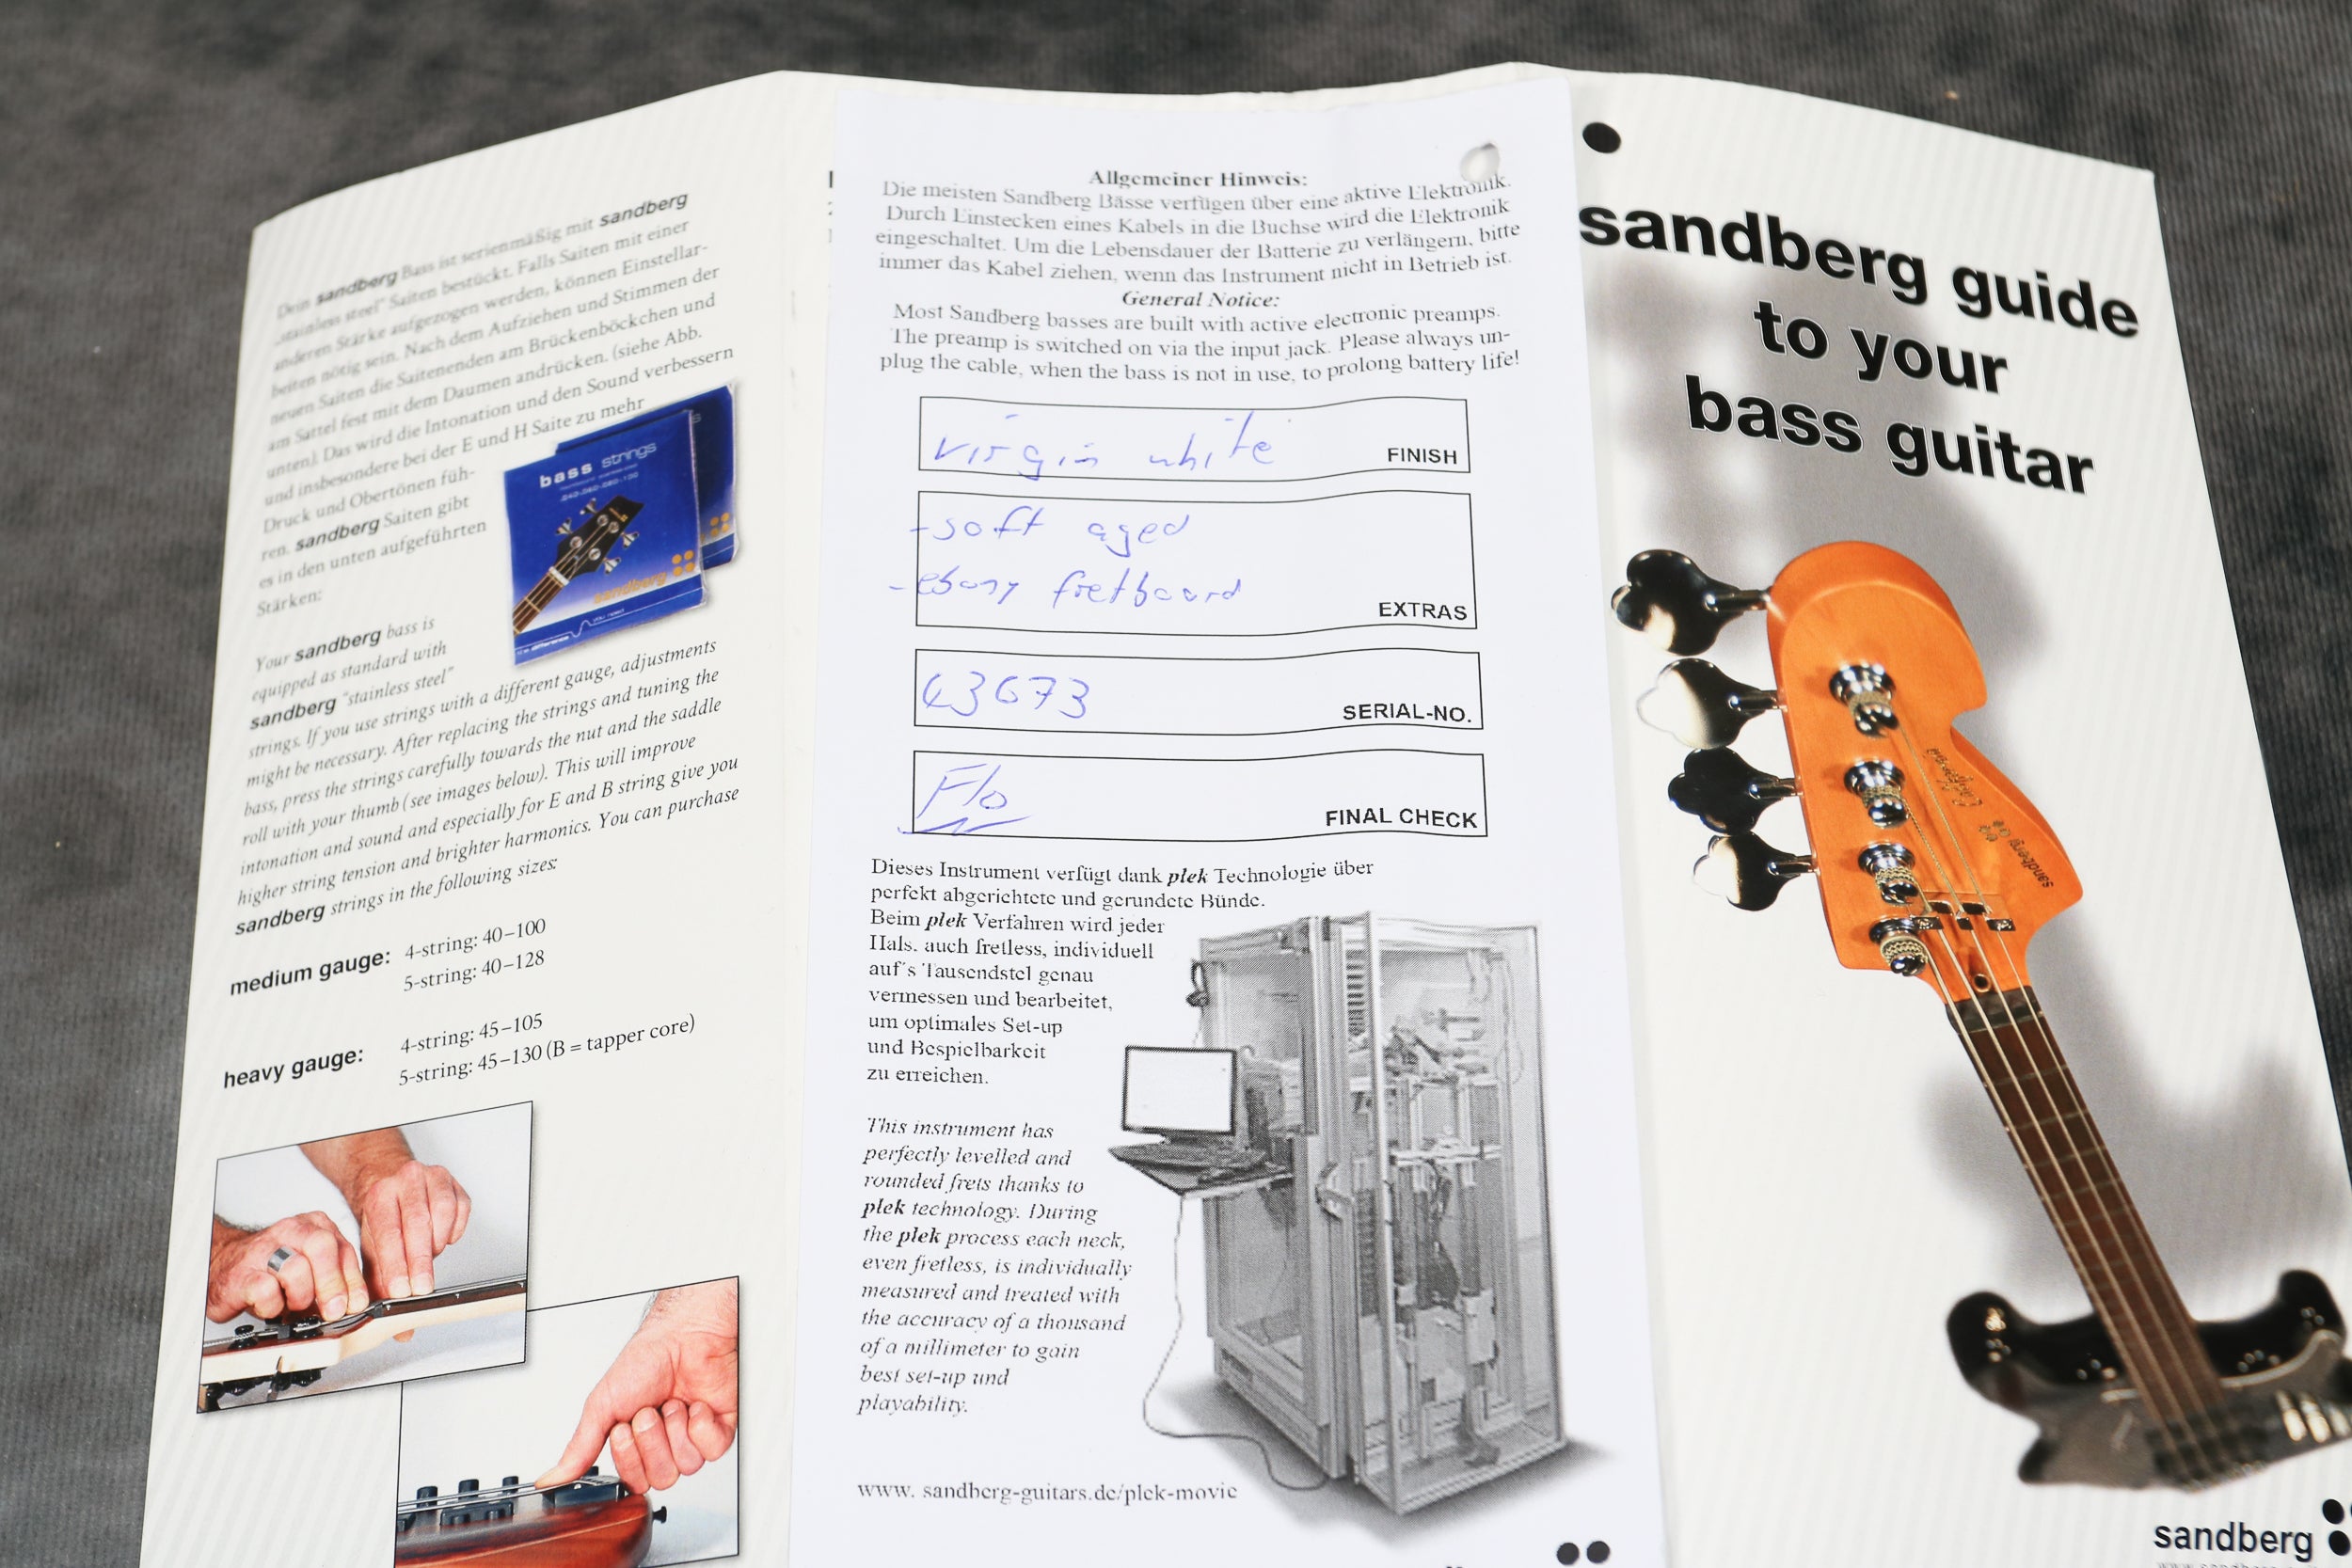 Dein sandberg Bass ist serienmäßig mit sandberg
„stainless steel" Saiten bestückt. Falls Saiten mit einer
anderen Stärke aufgezogen werden, können Einstellar-
beiten nötig sein. Nach dem Aufziehen und Stimmen der
neuen Saiten die Saitenenden am Brückenböckchen und
am Sattel fest mit dem Daumen andrücken. (siehe Abb.
unten). Das wird die Intonation und den Sound verbessern
und insbesondere bei der E und H Saite zu mehr
Druck und Obertönen füh-
ren. sandberg Saiten gibt
es in den unten aufgeführten
Stärken:
bass strings
.040-.060-.080-.100
sandberg
Your sandberg bass is
equipped as standard with
sandberg "stainless steel"
strings. If you use strings with a different gauge, adjustments
might be necessary. After replacing the strings and tuning the
bass, press the strings carefully towards the nut and the saddle
roll with your thumb (see images below). This will improve
intonation and sound and especially for E and B string give you
higher string tension and brighter harmonics. You can purchase
sandberg strings in the following sizes:
medium gauge: 4-string: 40–100
5-string: 40–128
heavy gauge: 4-string: 45–105
5-string: 45–130 (B = tapper core)
Allgemeiner Hinweis:
Die meisten Sandberg Bässe verfügen über eine aktive Elektronik.
Durch Einstecken eines Kabels in die Buchse wird die Elektronik
eingeschaltet. Um die Lebensdauer der Batterie zu verlängern, bitte
immer das Kabel ziehen, wenn das Instrument nicht in Betrieb ist.
General Notice:
Most Sandberg basses are built with active electronic preamps.
The preamp is switched on via the input jack. Please always un-
plug the cable, when the bass is not in use, to prolong battery life!
virgin white FINISH
-soft aged
-ebony fretboard
EXTRAS
43673 SERIAL-NO.
Flo FINAL CHECK
Dieses Instrument verfügt dank plek Technologie über
perfekt abgerichtete und gerundete Bünde.
Beim plek Verfahren wird jeder
Hals. auch fretless, individuell
auf's Tausendstel genau
vermessen und bearbeitet,
um optimales Set-up
und Bespielbarkeit
zu erreichen.
This instrument has
perfectly levelled and
rounded frets thanks to
plek technology. During
the plek process each neck,
even fretless, is individually
measured and treated with
the accuracy of a thousand
of a millimeter to gain
best set-up und
playability.
www. sandberg-guitars.de/plek-movie
sandberg guide
to your
bass guitar
California
sandberg
sandberg